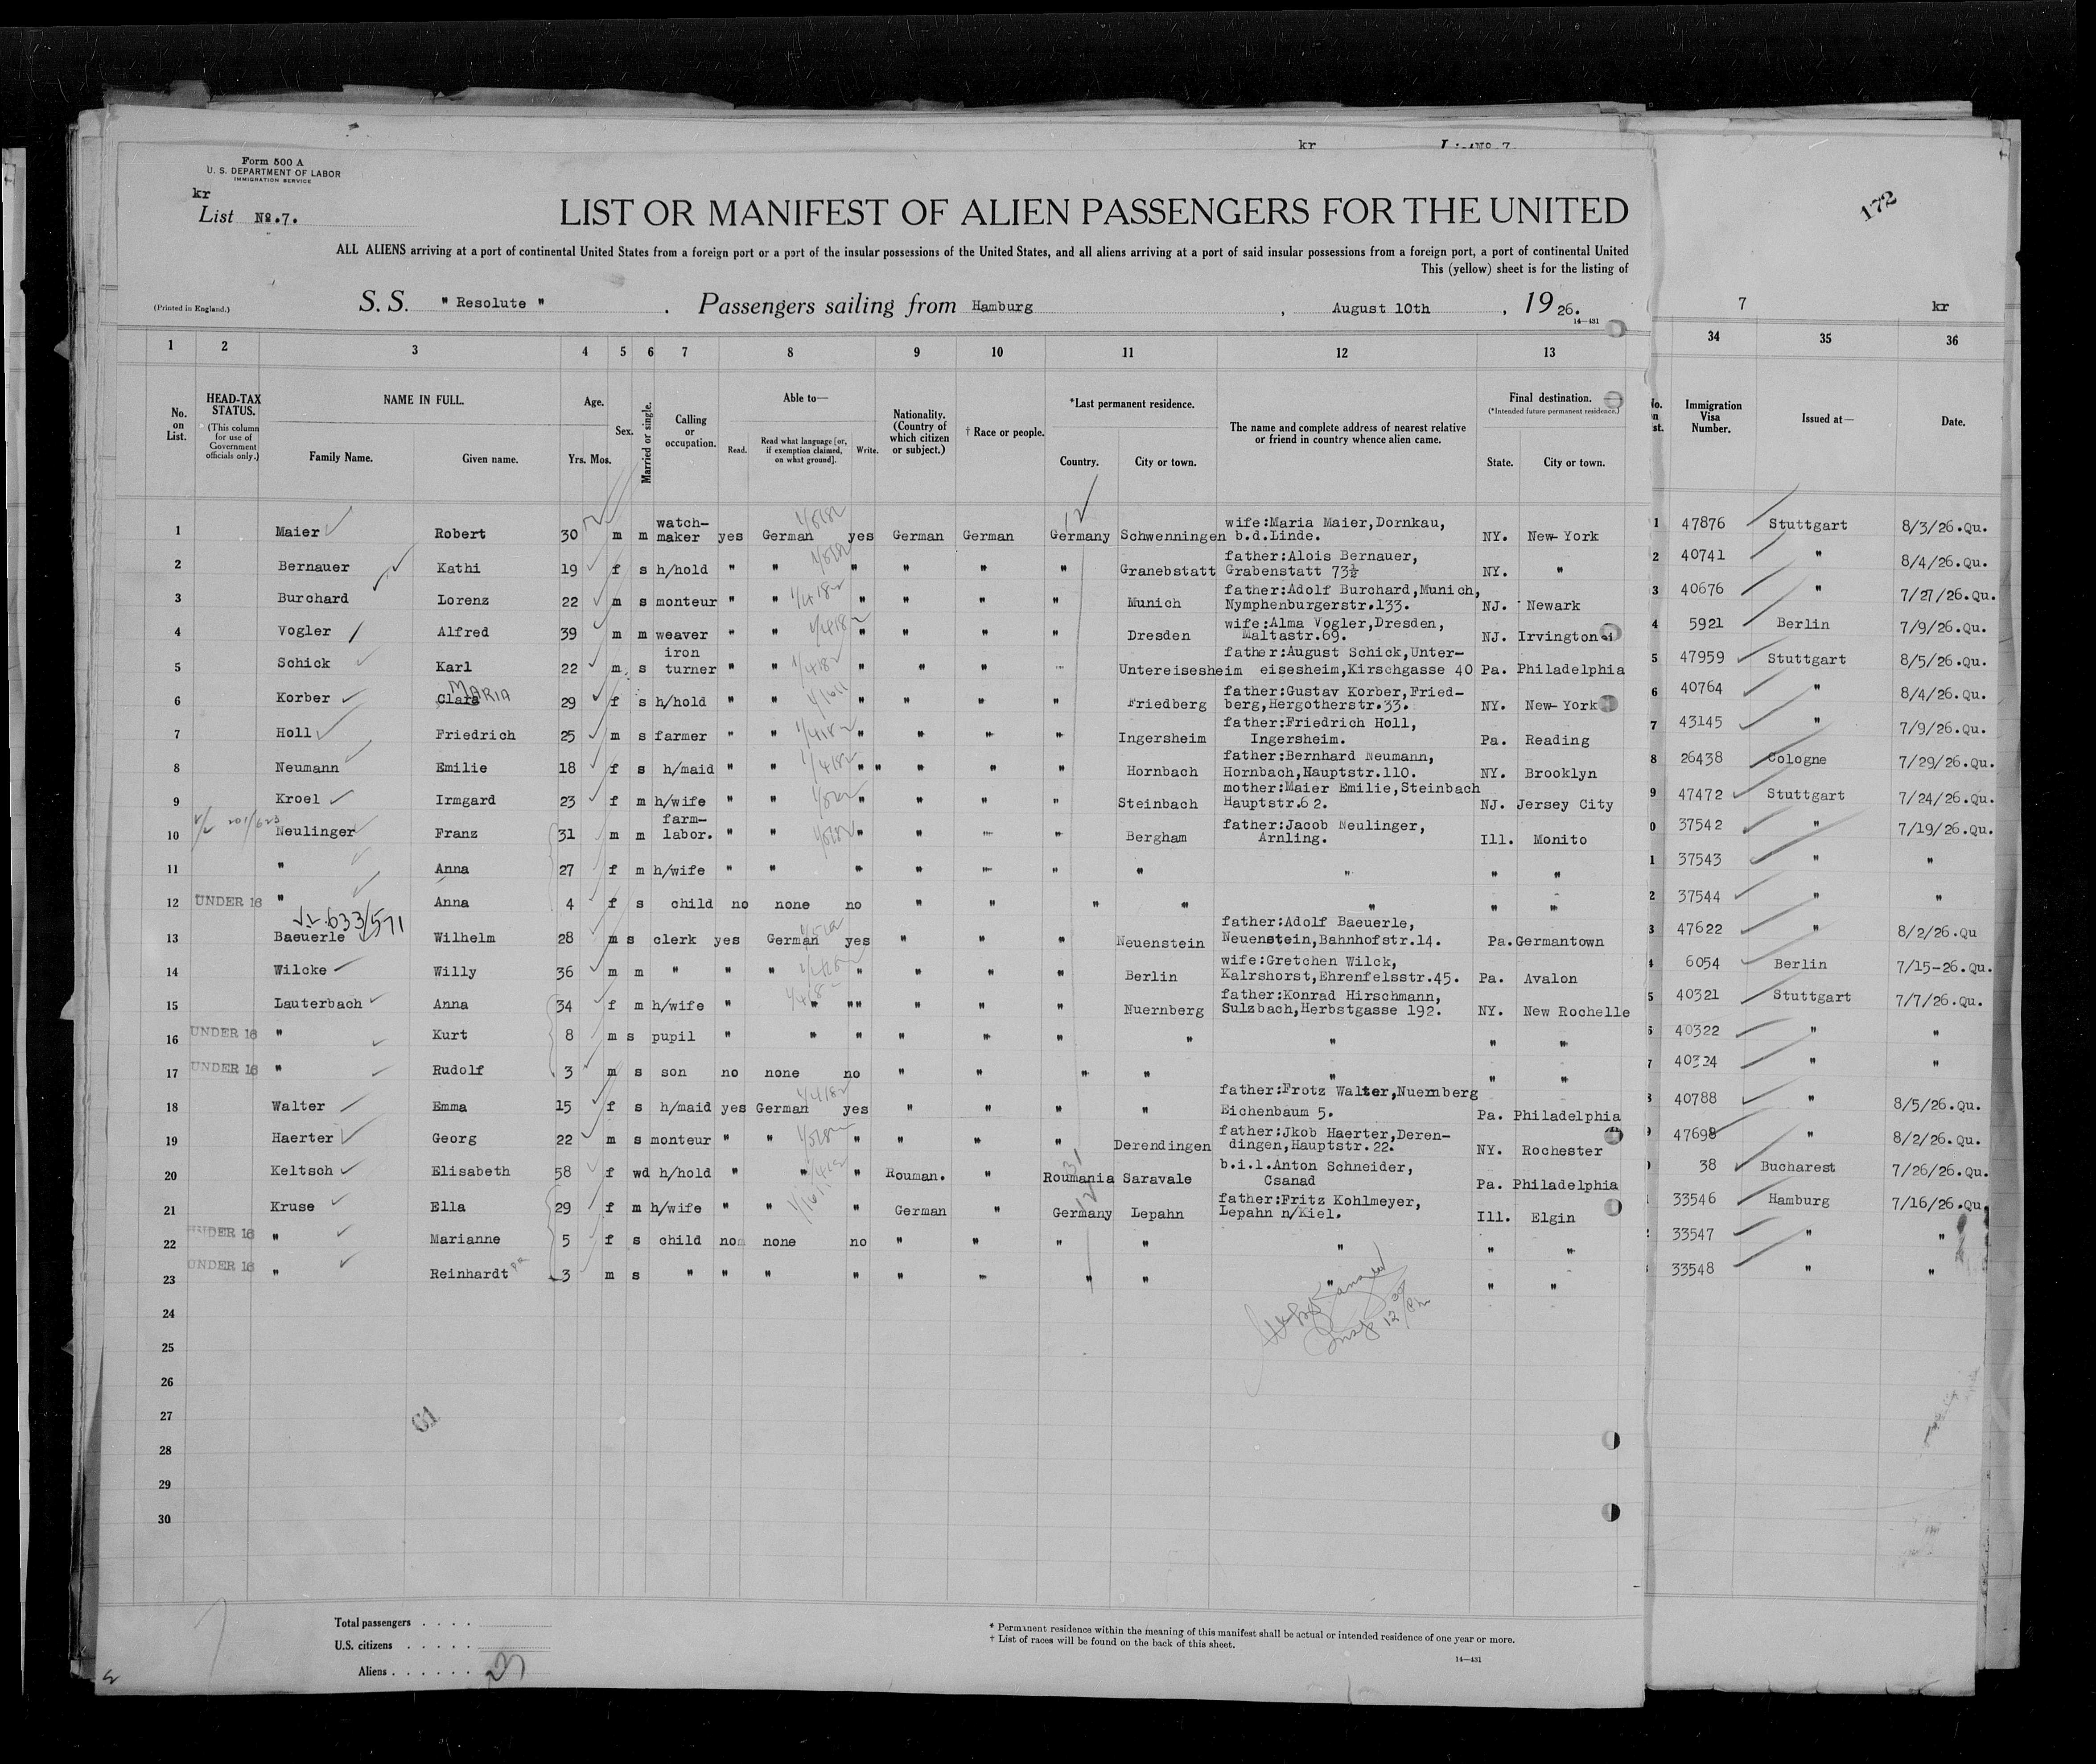 kr
Form 500 A
U. S. DEPARTMENT OF LABOR
IMMIGRATION SERVICE
kr
List No.7.
LIST OR MANIFEST OF ALIEN PASSENGERS FOR THE UNITED
172
ALL ALIENS arriving at a port of continental United States from a foreign port or a port of the insular possessions of the United States, and all aliens arriving at a port of said insular possessions from a foreign port, a port of continental United
This (yellow) sheet is for the listing of
(Printed in England.) S. S. " Resolute " . Passengers sailing from Hamburg , August 10th , 19 26.
14—431
7 kr
1 2 3 4 5 6 7 8 9 10 11 12 13 34 35 36
No. on List. HEAD-TAX STATUS. (This column for use of Government officials only.) NAME IN FULL. Family Name. Given name. Age. Yrs. Mos. Sex. Married or single. Calling or occupation. Able to— Read. Read what language [or, if exemption claimed, on what ground]. Write. Nationality. (Country of which citizen or subject.) † Race or people. *Last permanent residence. Country. City or town. The name and complete address of nearest relative or friend in country whence alien came. Final destination. (*Intended future permanent residence.) State. City or town. Immigration Visa Number. Issued at— Date.
1 Maier Robert 30 m m watch-maker yes German yes German German Germany Schwenningen wife:Maria Maier,Dornkau, b.d.Linde. NY. New-York 1 47876 Stuttgart 8/3/26.Qu.
2 Bernauer Kathi 19 f s h/hold " " " " " " Granebstatt father:Alois Bernauer, Grabenstatt 73½ NY. " 2 40741 " 8/4/26.Qu.
3 Burchard Lorenz 22 m s monteur " " " " " " Munich father:Adolf Burchard,Munich, Nymphenburgerstr.133. NJ. Newark 3 40676 " 7/27/26.Qu.
4 Vogler Alfred 39 m m weaver " " " " " " Dresden wife:Alma Vogler,Dresden, Maltastr.69. NJ. Irvington 4 5921 Berlin 7/9/26.Qu.
5 Schick Karl 22 m s iron turner " " " " " " Untereisesheim father:August Schick,Unter-eisesheim,Kirschgasse 40 Pa. Philadelphia 5 47959 Stuttgart 8/5/26.Qu.
6 Korber Clara MARIA 29 f s h/hold " " " " " " Friedberg father:Gustav Korber,Fried-berg,Hergotherstr.33. NY. New-York 6 40764 " 8/4/26.Qu.
7 Holl Friedrich 25 m s farmer " " " " " " Ingersheim father:Friedrich Holl, Ingersheim. Pa. Reading 7 43145 " 7/9/26.Qu.
8 Neumann Emilie 18 f s h/maid " " " " " " " Hornbach father:Bernhard Neumann, Hornbach,Hauptstr.110. NY. Brooklyn 8 26438 Cologne 7/29/26.Qu.
9 Kroel Irmgard 23 f m h/wife " " " " " " Steinbach mother:Maier Emilie,Steinbach Hauptstr.62. NJ. Jersey City 9 47472 Stuttgart 7/24/26.Qu.
10 Neulinger Franz 31 m m farm-labor. " " " " " " Bergham father:Jacob Neulinger, Arnling. Ill. Monito 0 37542 " 7/19/26.Qu.
11 " Anna 27 f m h/wife " " " " " " " " " " 1 37543 " "
12 UNDER 16 " Anna 4 f s child no none no " " " " " " " 2 37544 " "
13 Baeuerle Wilhelm 28 m s clerk yes German yes " " " Neuenstein father:Adolf Baeuerle, Neuenstein,Bahnhofstr.14. Pa. Germantown 3 47622 " 8/2/26.Qu
14 Wilcke Willy 36 m m " " " " " " " Berlin wife:Gretchen Wilck, Kalrshorst,Ehrenfelsstr.45. Pa. Avalon 4 6054 Berlin 7/15-26.Qu.
15 Lauterbach Anna 34 f m h/wife " " " " " " " Nuernberg father:Konrad Hirschmann, Sulzbach,Herbstgasse 192. NY. New Rochelle 5 40321 Stuttgart 7/7/26.Qu.
16 UNDER 16 " Kurt 8 m s pupil " " " " " " " " " " 6 40322 " "
17 UNDER 16 " Rudolf 3 m s son no none no " " " " " " " 7 40324 " "
18 Walter Emma 15 f s h/maid yes German yes " " " " father:Frotz Walter,Nuernberg Eichenbaum 5. Pa. Philadelphia 8 40788 " 8/5/26.Qu.
19 Haerter Georg 22 m s monteur " " " " " " Derendingen father:Jkob Haerter,Deren-dingen,Hauptstr.22. NY. Rochester 9 47698 " 8/2/26.Qu.
20 Keltsch Elisabeth 58 f wd h/hold " " " Rouman. " Roumania Saravale b.i.l.Anton Schneider, Csanad Pa. Philadelphia 38 Bucharest 7/26/26.Qu.
21 Kruse Ella 29 f m h/wife " " " German " Germany Lepahn father:Fritz Kohlmeyer, Lepahn n/Kiel. Ill. Elgin 33546 Hamburg 7/16/26.Qu.
22 UNDER 16 " Marianne 5 f s child no none no " " " " " " " 33547 " "
23 UNDER 16 " Reinhardt 3 m s " " " " " " " " " " " 33548 " "
24
25
26
27
28
29
30
Total passengers . . . .
U.S. citizens . . . . .
Aliens . . . . . .
* Permanent residence within the meaning of this manifest shall be actual or intended residence of one year or more.
† List of races will be found on the back of this sheet.
14—431